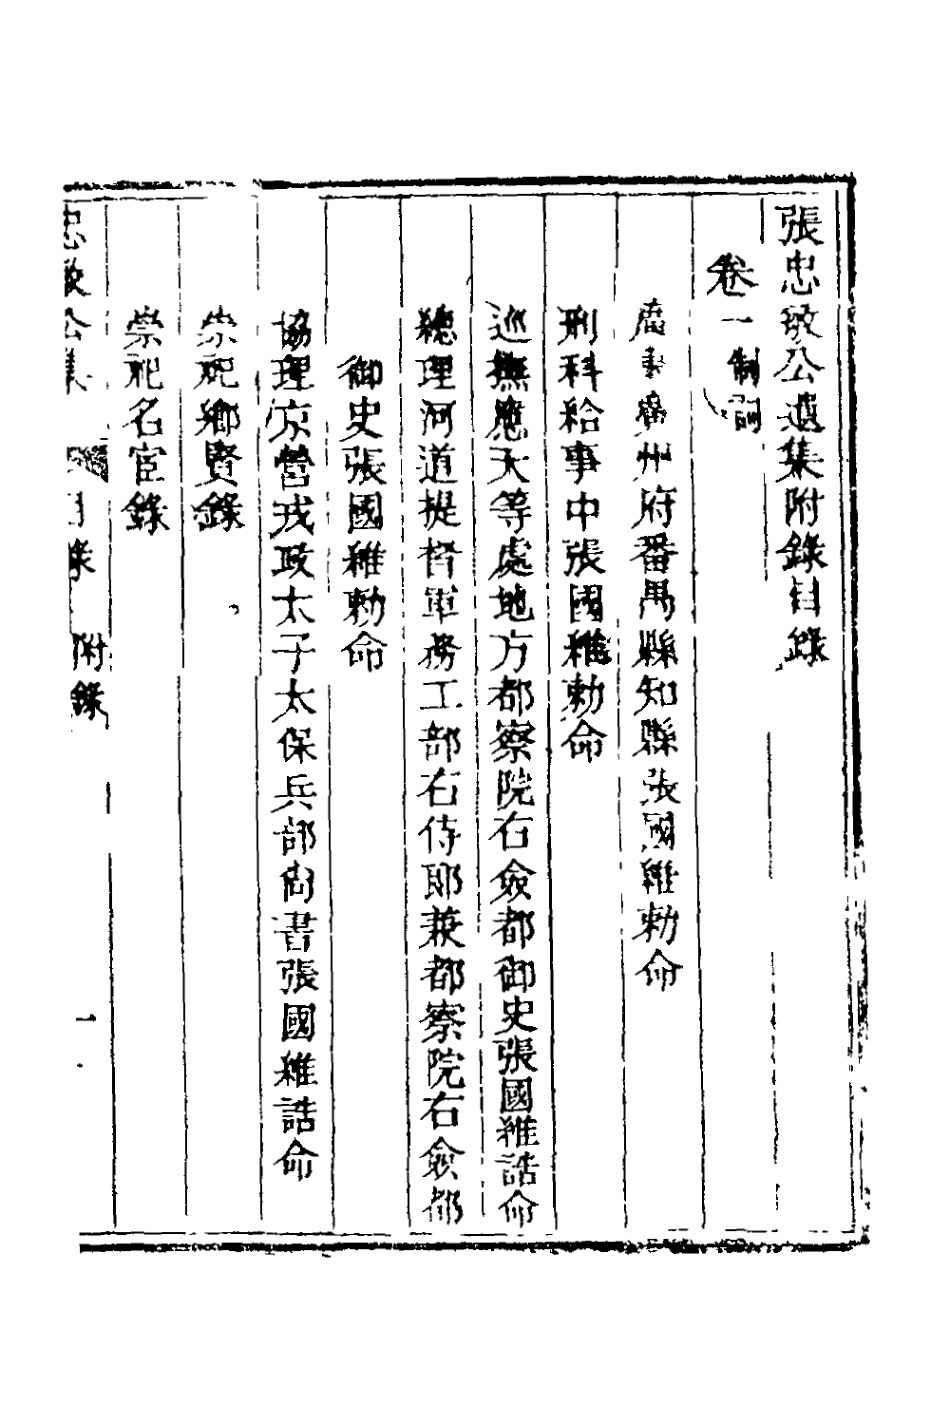 張忠敏公遺集附錄目錄
卷一 制詞
廣東廣州府番禺縣知縣張國維勅命
刑科給事中張國維勅命
巡撫應天等處地方都察院右僉都御史張國維誥命
總理河道提督軍務工部右侍郎兼都察院右僉都
御史張國維勅命
協理京營戎政太子太保兵部尚書張國維誥命
崇祀鄉賢錄
崇祀名宦錄
忠敏公集 目錄 附錄 一